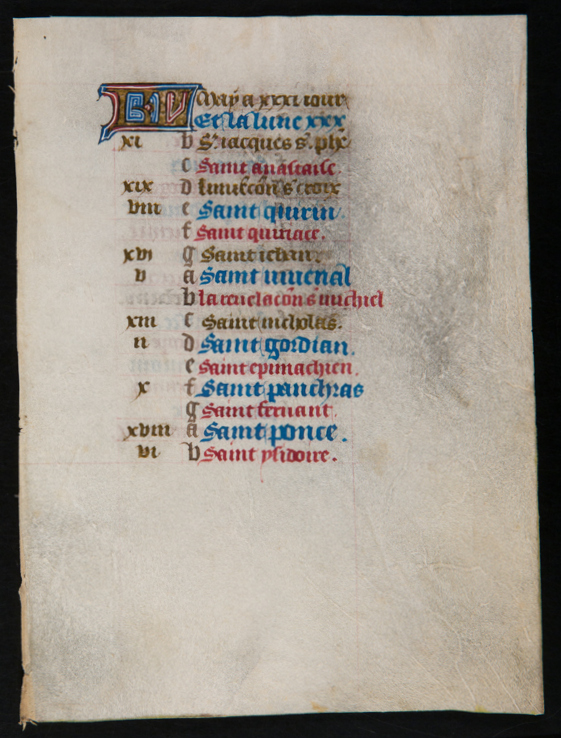 KL May a xxxi iour
Et la lune xxx
xi b S. iacques s. ph̄e
c Saint anastaise.
xix d Linuēcōn s. croix
viii e Saint quirin.
f Saint quiriace.
xvi g Saint iehan.
v a Saint iuuenal
b la reuelacōn s. michiel
xiii c Saint nicholas.
ii d Saint gordian.
e Saint epimachien.
x f Saint panchras
g Saint seruant.
xviii a Saint ponce.
vi b Saint ysidoire.